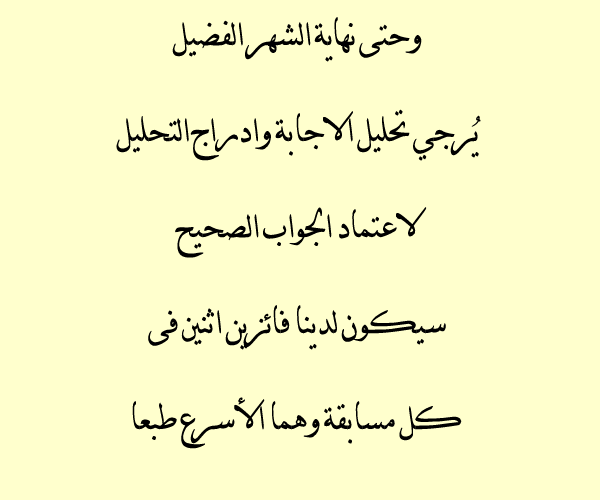 وحتى نهاية الشهر الفضيل
يُرجي تحليل الاجابة وادراج التحليل
لاعتماد الجواب الصحيح
سيكون لدينا فائزين اثنين فى
كل مسابقة وهما الأسرع طبعا